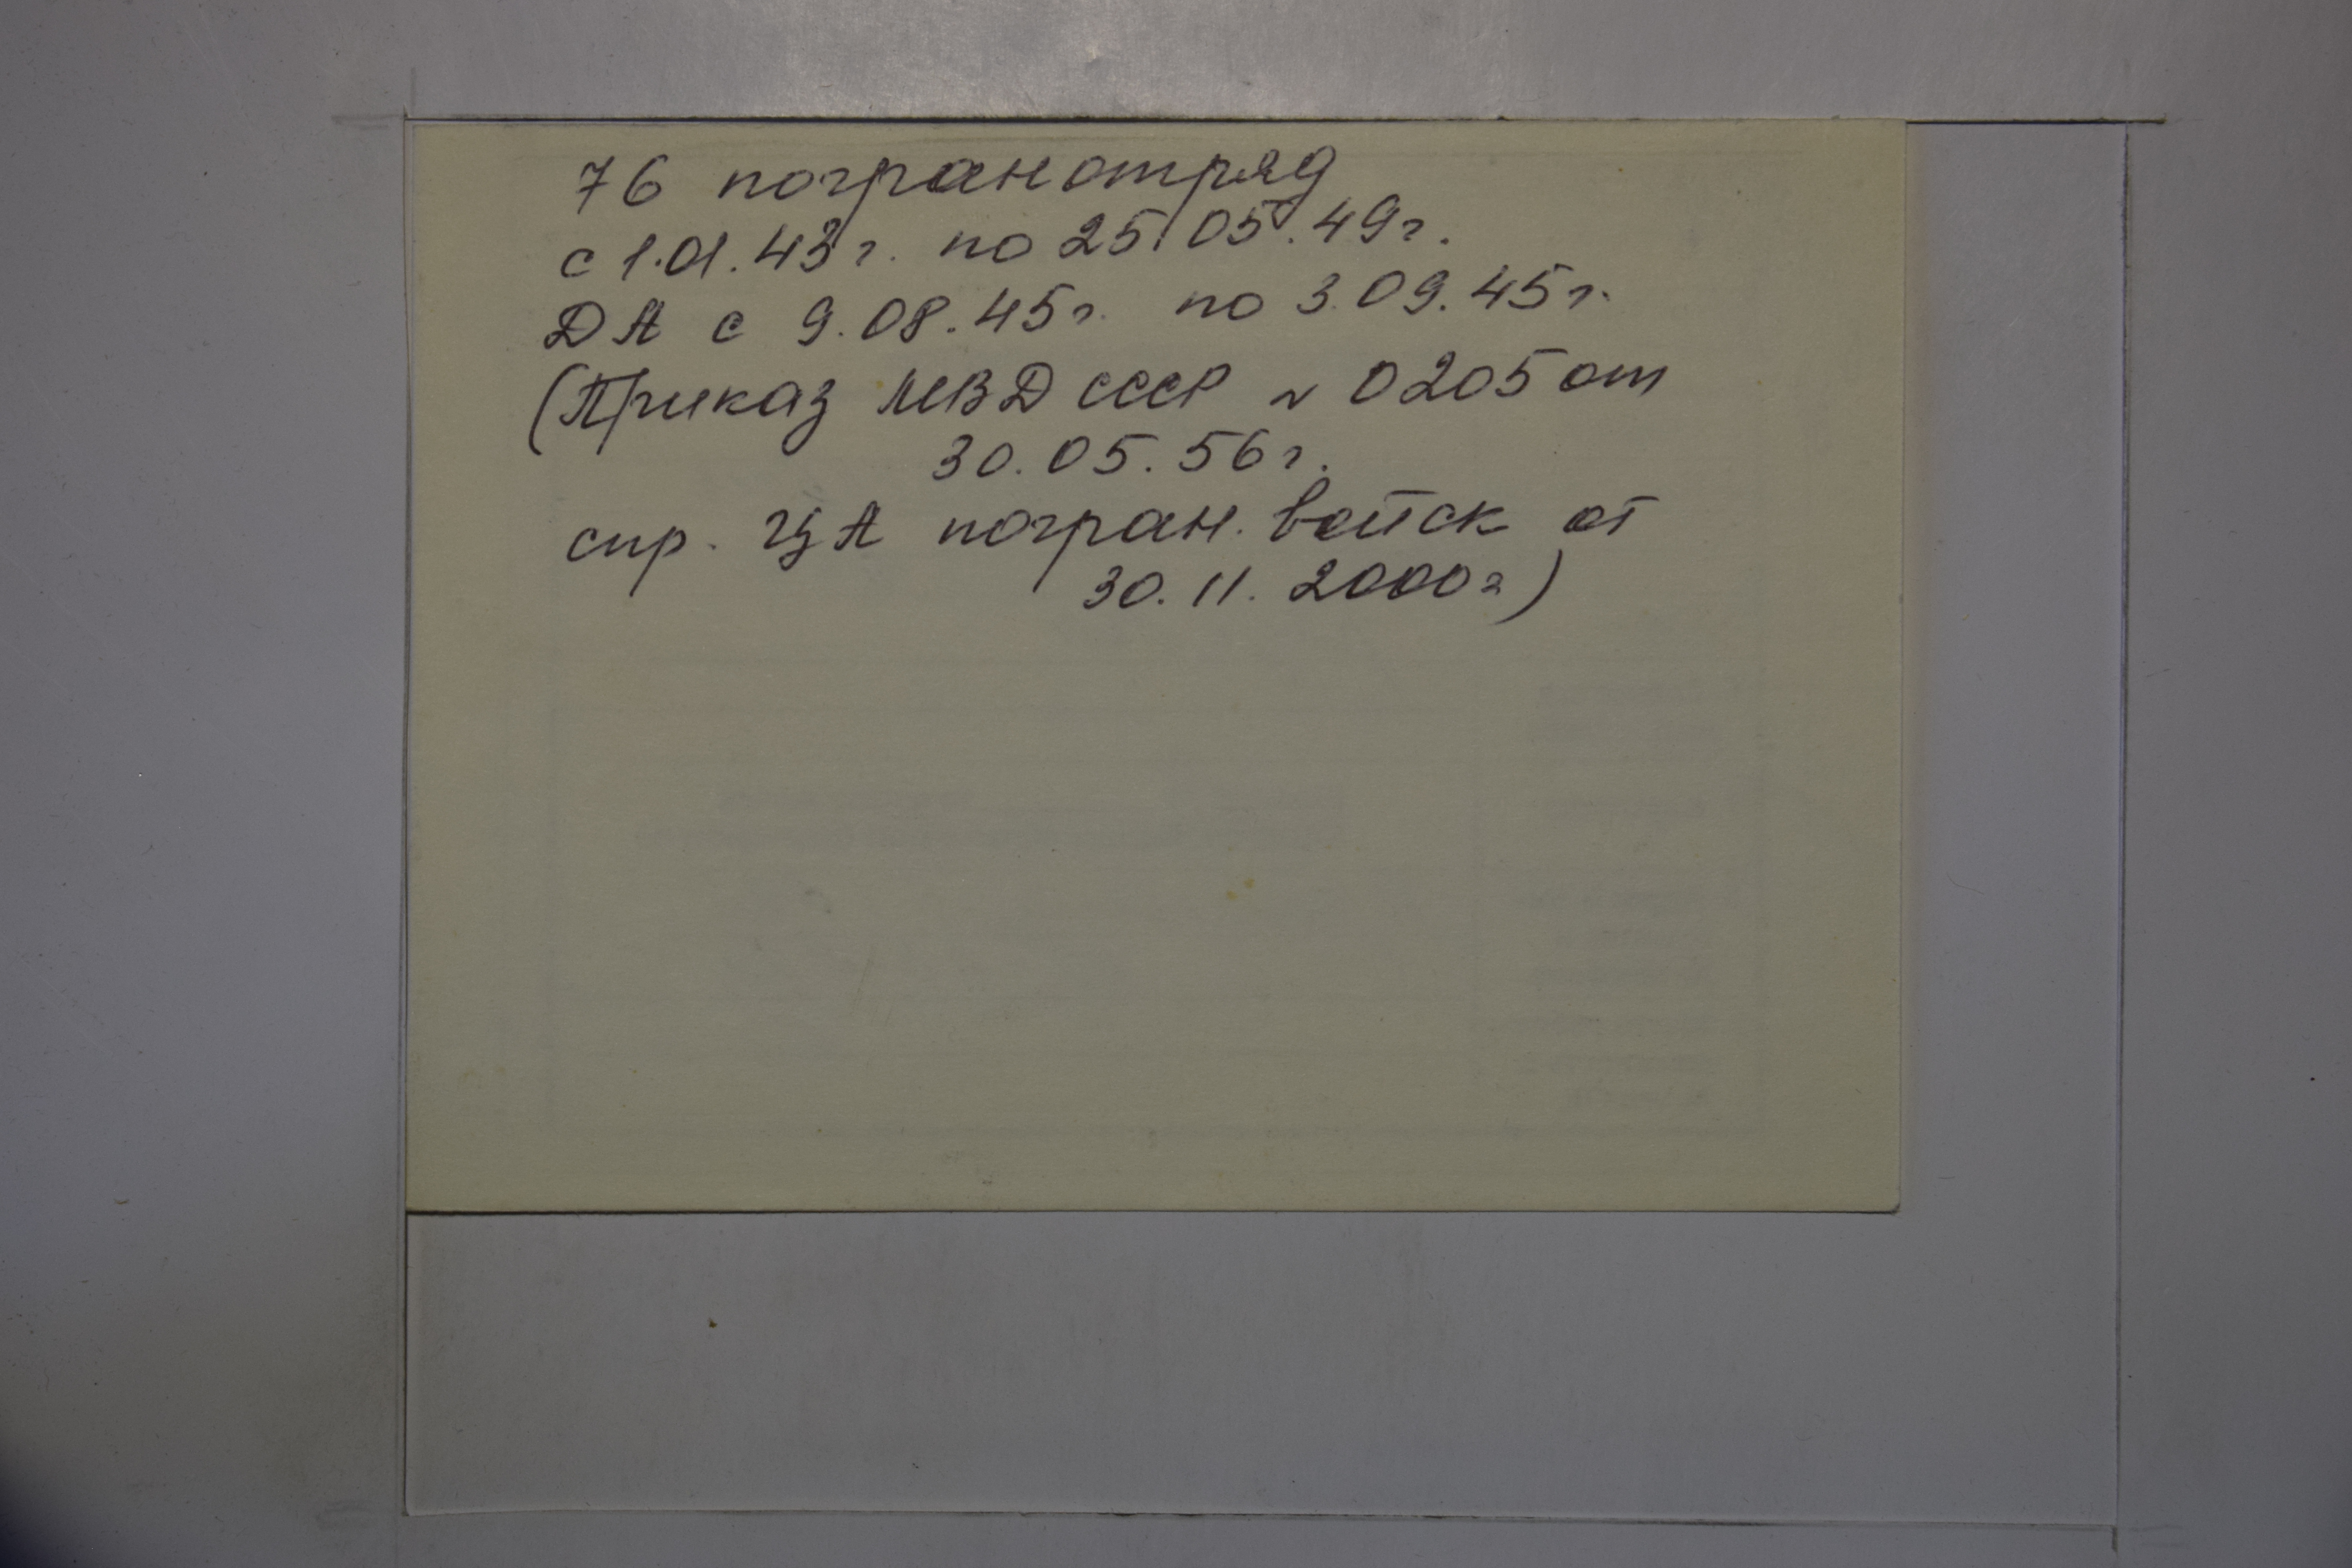 76 погранотряд
с 1.01.43г. по 25.05.49г.
ДА с 9.08.45г. по 3.09.45г.
(Приказ МВД СССР № 0205 от
30.05.56г.
спр. ЦА погран. войск от
30.11.2000г)